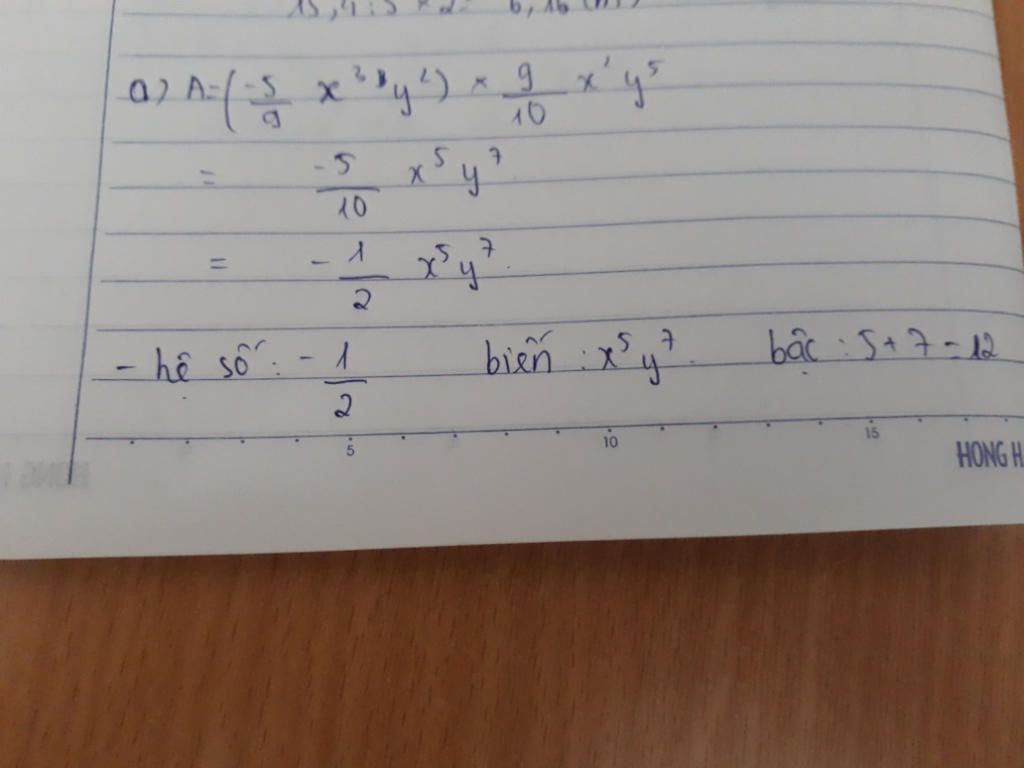 15,4 : 5 × 2 = 6,16 (m)
a) A = (-5/9 x³ y²) × 9/10 x' y⁵
= -5/10 x⁵ y⁷
= - 1/2 x⁵ y⁷.
- hệ số: - 1/2 biến : x⁵ y⁷. bậc : 5 + 7 = 12
5 10 15
HONG H